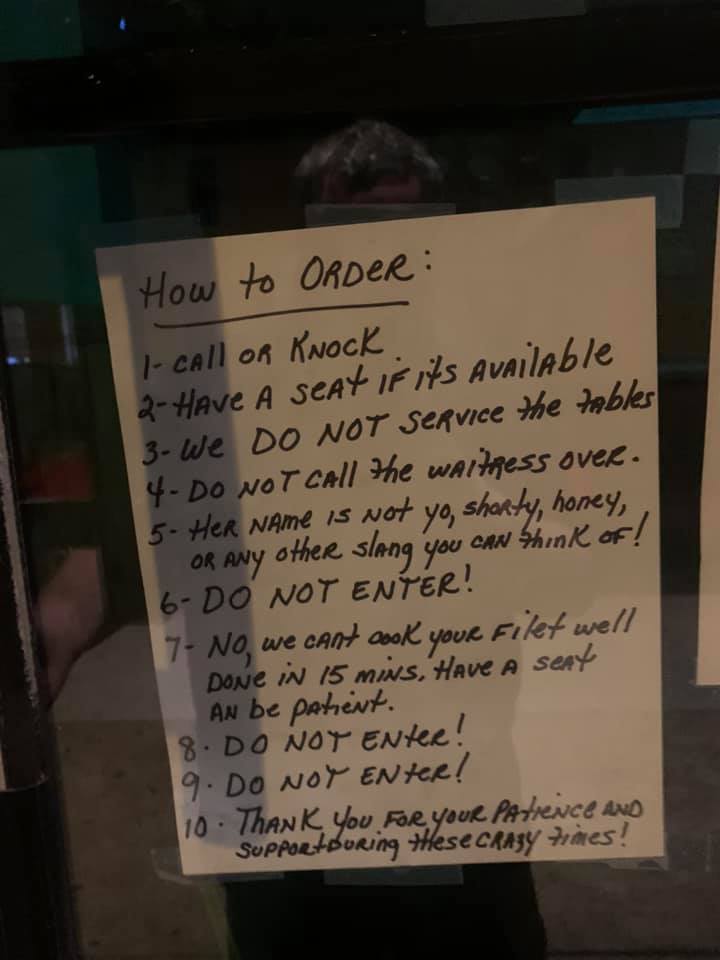 How to ORDER:
1- CAll OR KNOCK
2- HAVE A SEAt IF it's AVAilAble
3- We DO NOT SERVICE the tAbles
4- DO NOT CAll the WAITRESS OVER.
5- HER NAME is NOT yo, shorty, honey,
OR ANY other slang you CAN think OF!
6- DO NOT ENTER!
7- NO, we cant cook your Filet well
DONE iN 15 miNs. HAVE A SEAt
AN be pAtient.
8. DO NOT ENter!
9. DO NOT ENter!
10. THANK you FOR youR PAtieNce AND
SUPPORt DURiNg these CRAzy times!